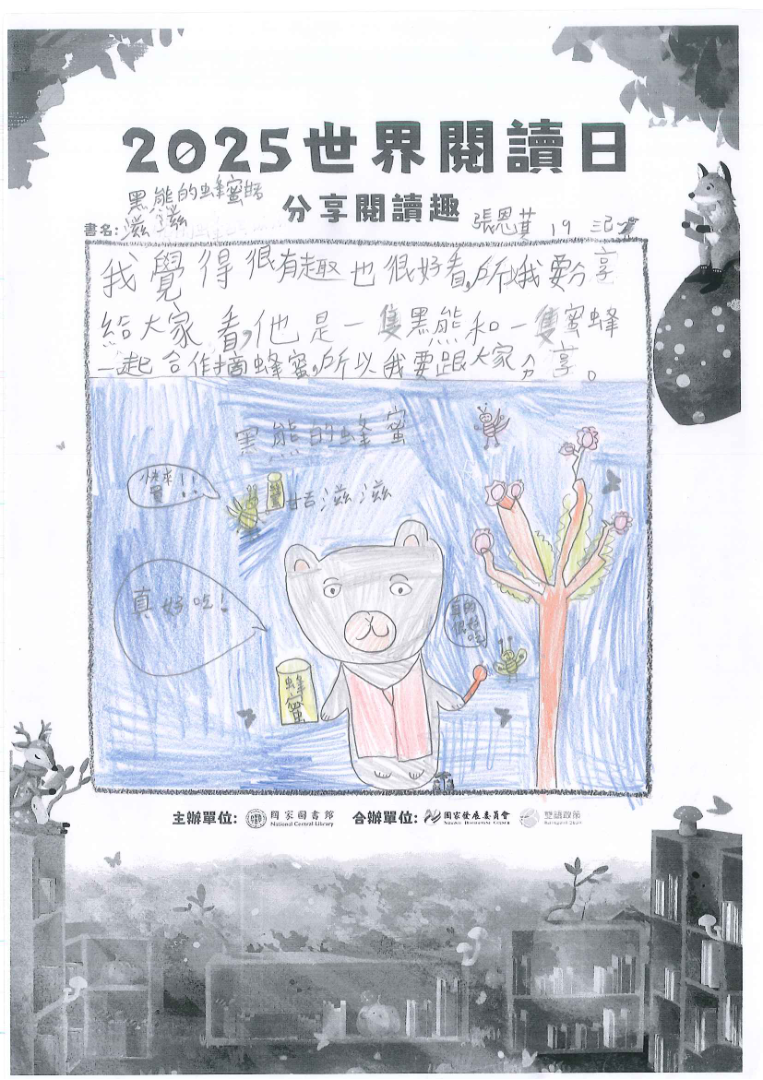 2025世界閱讀日
分享閱讀趣
書名:黑熊的蜂蜜甜
滋滋
張恩其 19 三己
我覺得很有趣也很好看,所以我要分享
給大家看,他是一隻黑熊和一隻蜜蜂
一起合作摘蜂蜜,所以我要跟大家分享。
黑熊的蜂蜜
甜滋滋
快來
買!!
真好吃!
真的
很好
吃
蜂
蜜
主辦單位: 國家圖書館 National Central Library 合辦單位: 國家發展委員會 National Development Council 雙語政策